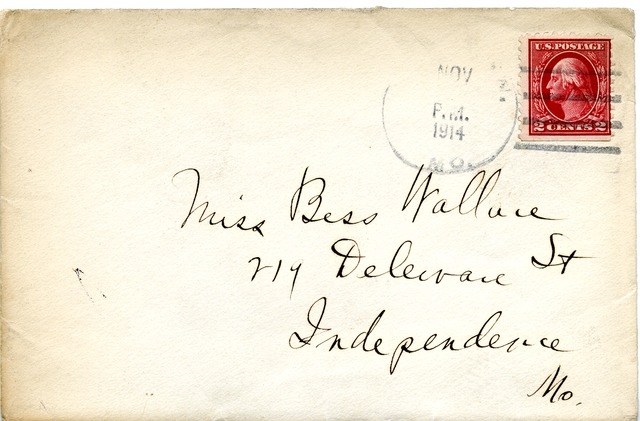 U.S. POSTAGE
2 CENTS 2
NOV
P.M.
1914
MO.
Miss Bess Wallace
219 Deleware St
Independence
Mo.